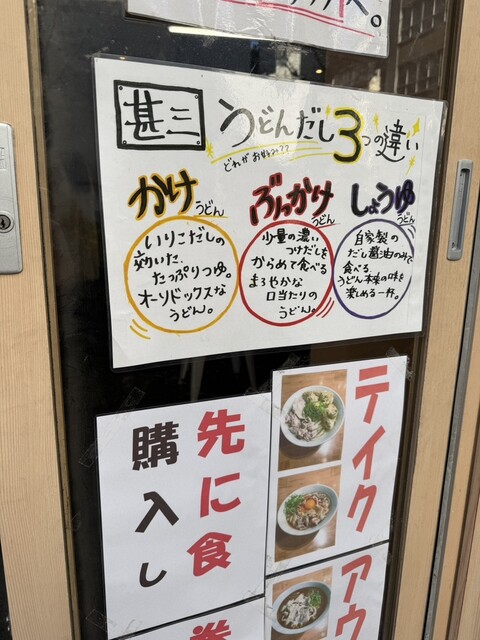 甚三
うどんだし3つの違い
どれがお好み??
かけうどん
いりこだしの
効いた、
たっぷりつゆ。
オーソドックスな
うどん。
ぶっかけうどん
少量の濃い
つけだしを
からめて食べる
まろやかな
口当たりの
うどん。
しょうゆうどん
自家製の
だし醤油のみで
食べる
うどん本来の味を
楽しめる一杯。
先に食
購入し
テイクアウ